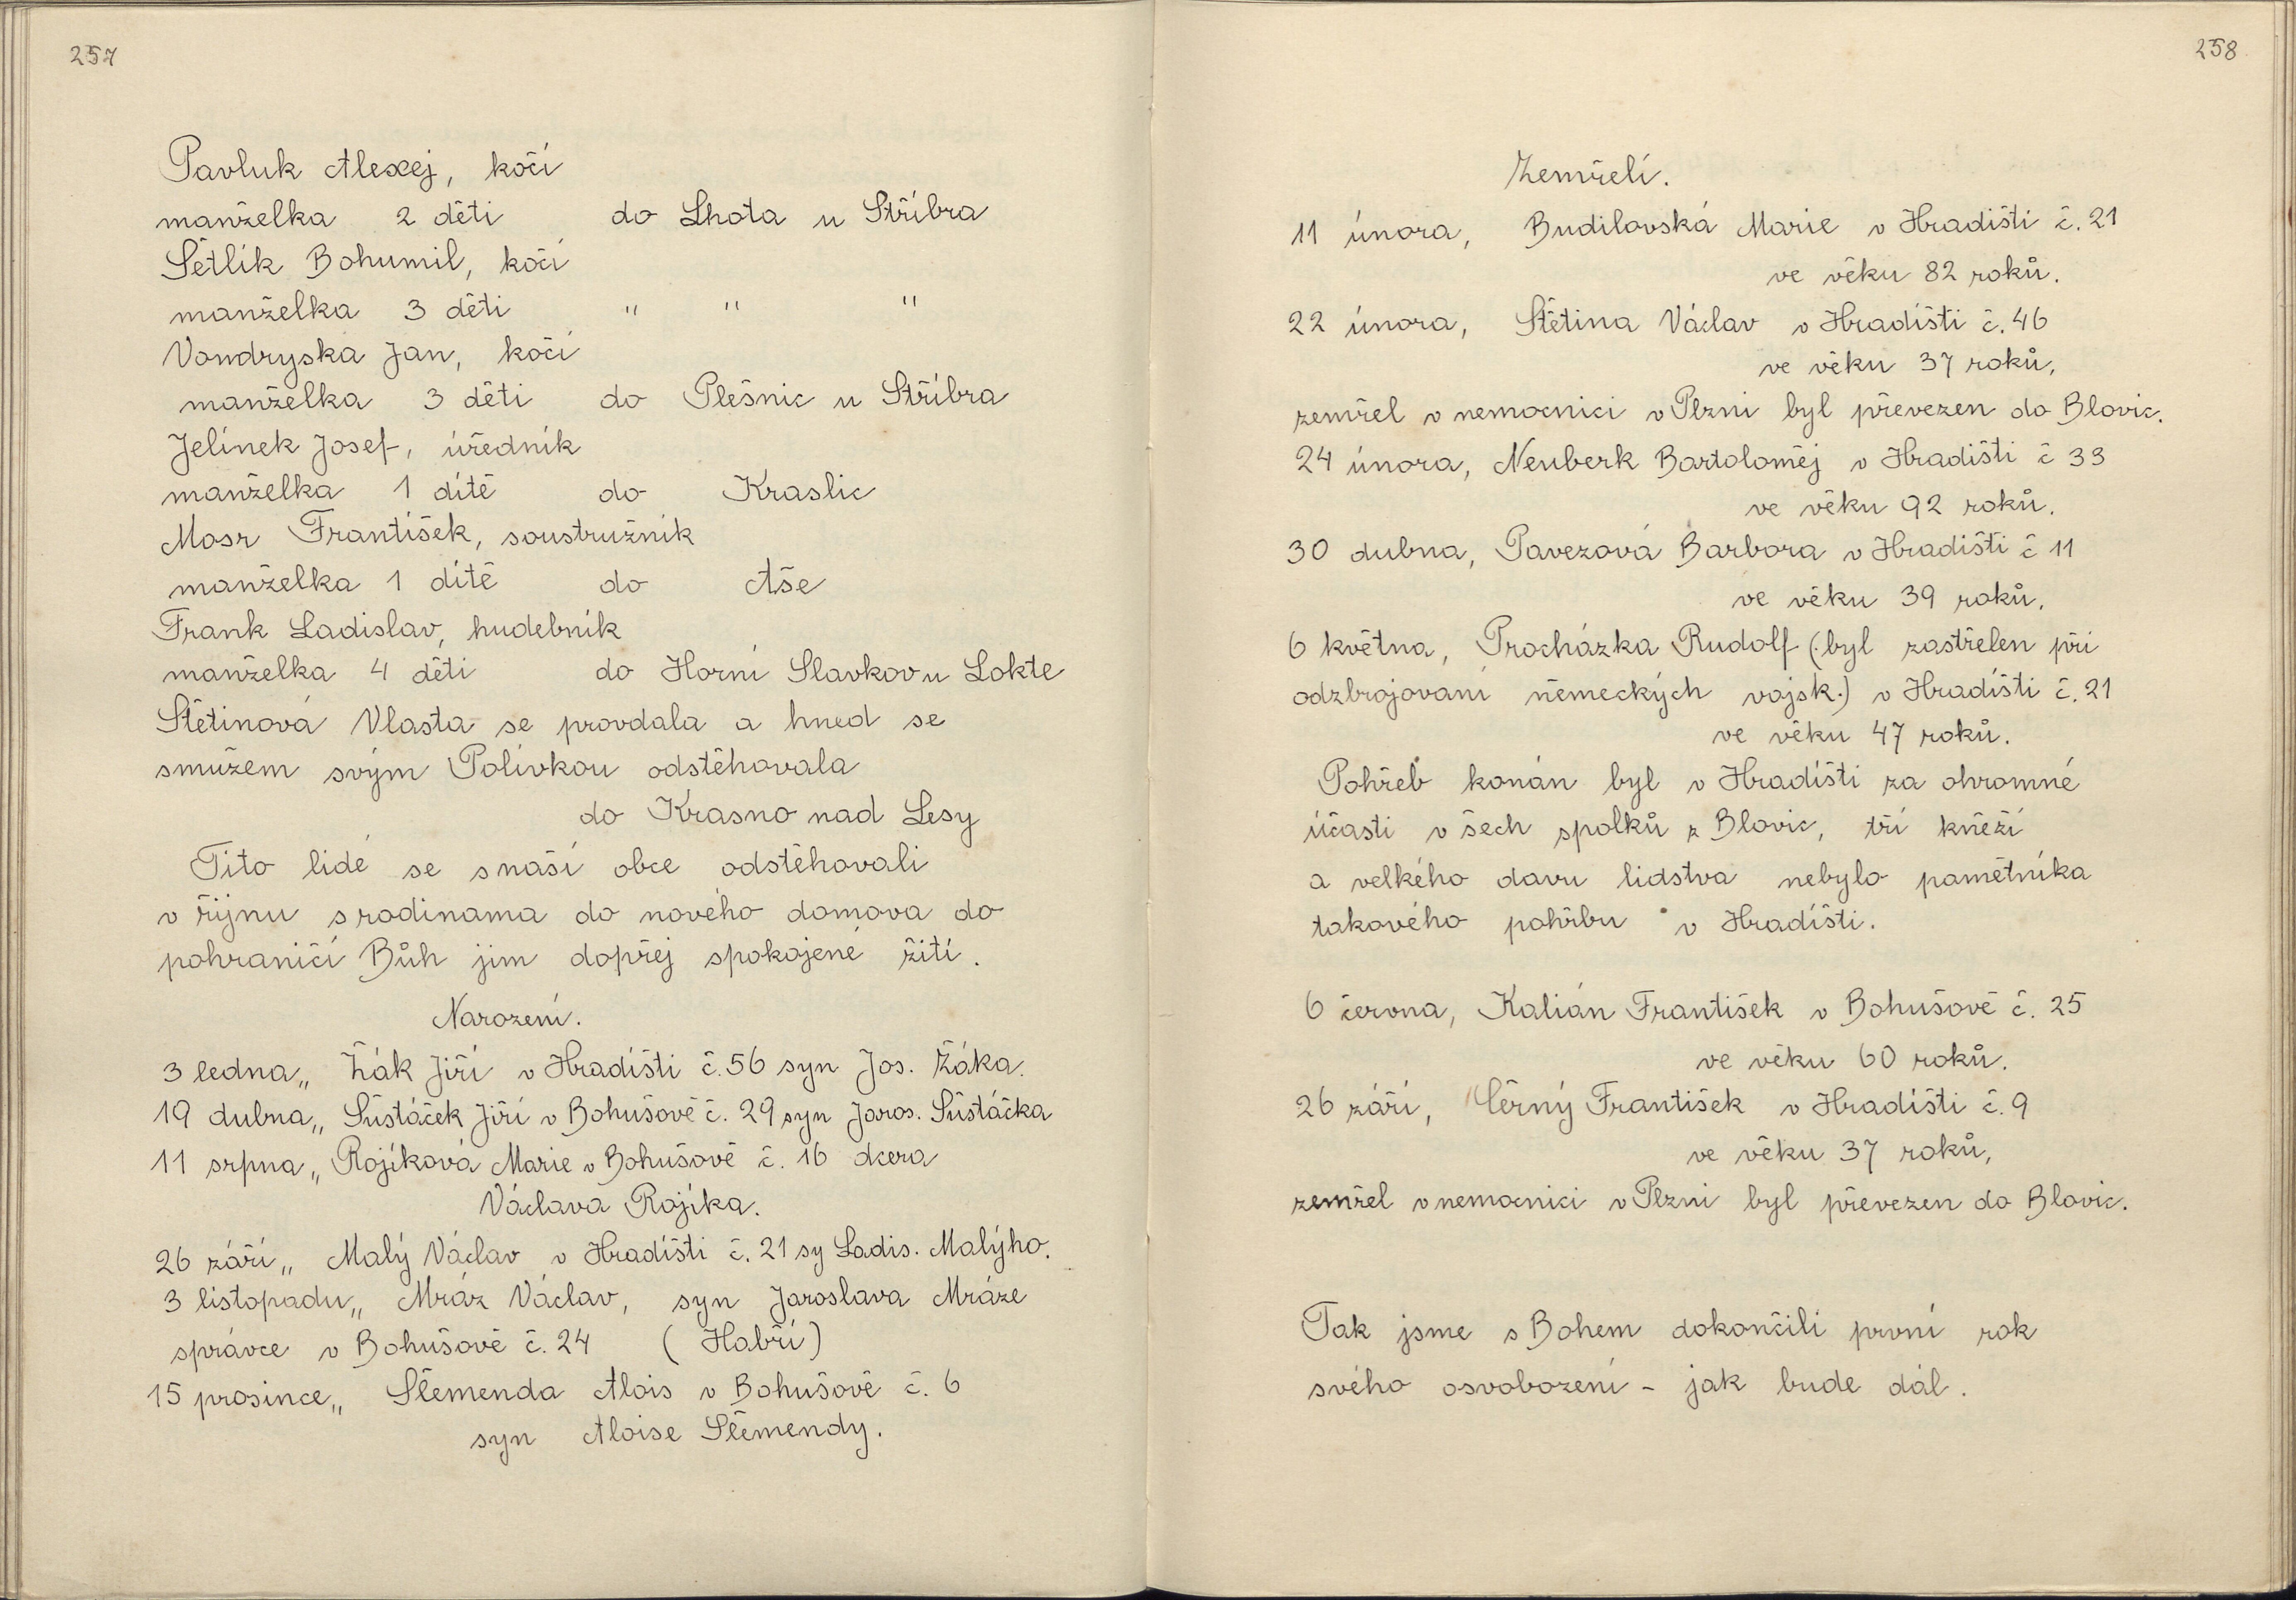 257
Pavluk Alexej, kočí
manželka 2 děti do Lhota u Stříbra
Šětlík Bohumil, kočí
manželka 3 děti " " "
Vondryska Jan, kočí
manželka 3 děti do Plešnic u Stříbra
Jelínek Josef, úředník
manželka 1 dítě do Kraslic
Mosr František, soustružník
manželka 1 dítě do Aše
Frank Ladislav, hudebník
manželka 4 děti do Horní Slavkov u Lokte
Štětinová Vlasta se provdala a hned se
smužem svým Polívkou odstěhovala
do Krasno nad Lesy
Tito lidé se snaší obce odstěhovali
v říjnu srodinama do nového domova do
pohraničí Bůh jim dopřej spokojené žití.
Narození.
3 ledna„ Žák Jiří v Hradíšti č.56 syn Jos. Žáka.
19 dubna„ Šustáček Jiří v Bohušově č. 29 syn Jaros. Šustáčka
11 srpna„ Rojíková Marie v Bohušově č. 16 dcera
Václava Rojíka.
26 září„ Malý Václav v Hradíšti č. 21 sy Ladis. Malýho.
3 listopadu„ Mráz Václav, syn Jaroslava Mráze
správce v Bohušově č. 24 ( Habří)
15 prosince„ Slemenda Alois v Bohušově č. 6
syn Aloise Slemendy.
258
Zemřelí.
11 února, Budilovská Marie v Hradišti č. 21
ve věku 82 roků.
22 února, Štětina Václav v Hradíšti č. 46
ve věku 37 roků,
zemřel v nemocnici v Plzni byl převezen do Blovic.
24 února, Neuberk Bartoloměj v Hradišti č 33
ve věku 92 roků.
30 dubna, Pavezová Barbora v Hradišti č 11
ve věku 39 roků.
6 května, Procházka Rudolf (.byl zastřelen při
odzbrojovaní německých vojsk.) v Hradíšti č. 21
ve věku 47 roků.
Pohřeb konán byl v Hradíšti za ohromné
účasti v šech spolků z Blovic, tří kněží
a velkého davu lidstva nebylo pamětníka
takového pohřbu v Hradíšti.
6 června, Kalián František v Bohušově č. 25
ve věku 60 roků.
26 září, Černý František v Hradíšti č. 9
ve věku 37 roků,
zemřel v nemocnici v Plzni byl převezen do Blovic.
Tak jsme s Bohem dokončili první rok
svého osvobození - jak bude dál.